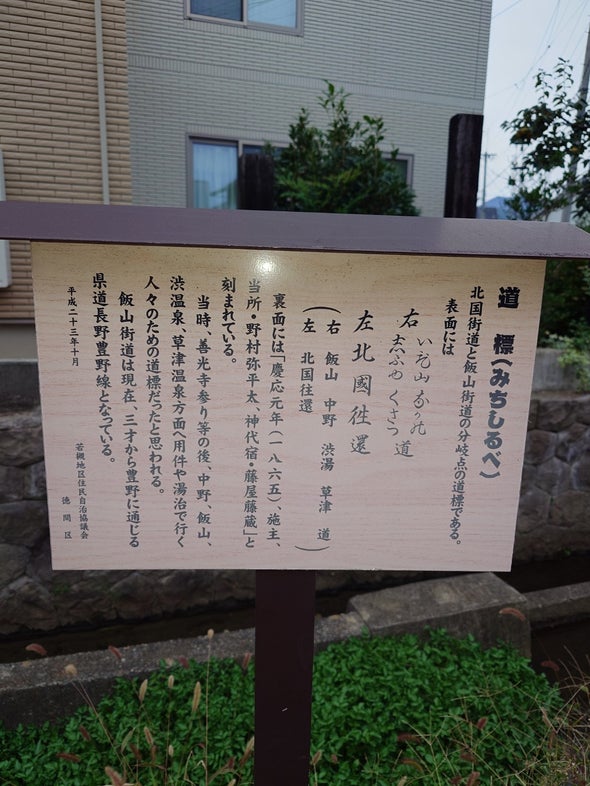 道 標(みちしるべ)
北国街道と飯山街道の分岐点の道標である。
表面には
右 いゝ山 なかの 道
志ぶゆ くさつ
左 北國往還
(右 飯山 中野 渋湯 草津 道)
(左 北国往還)
裏面には「慶応元年(一八六五)、施主、
当所・野村弥平太、神代宿・藤屋藤蔵」と
刻まれている。
当時、善光寺参り等の後、中野、飯山、
渋温泉、草津温泉方面へ用件や湯治で行く
人々のための道標だったと思われる。
飯山街道は現在、三才から豊野に通じる
県道長野豊野線となっている。
平成二十三年十月
若槻地区住民自治協議会
徳間区